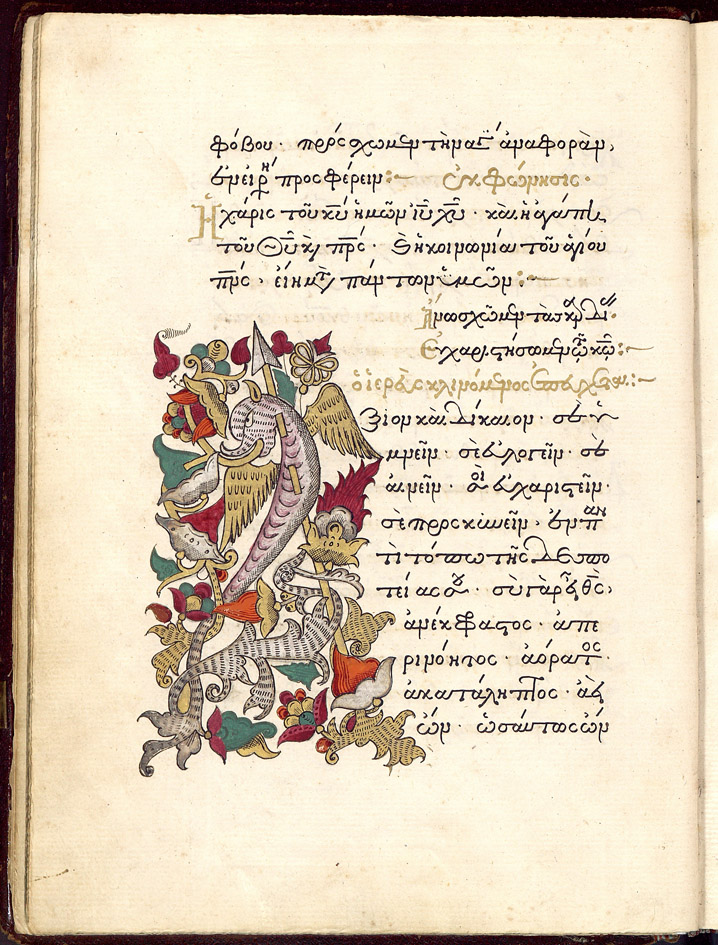 φόβου· πρόσχωμεν τὴν ἁγ ἀναφορὰν,
ἐν εἰρή προσφέρειν:~ ἐκφώνησις·
Ἡ χάρις τοῦ κῦ ἡμῶν ἰῦ χῦ· καὶ ἡ ἀγάπη
τοῦ Θῦ κ πρς· ἡ κοινωνία τοῦ ἁγίου
πνς· εἴη μτ πάντων ὑμῶν:~
Ἄνω σχῶμεν τὰς κρδ
Εὐχαριστήσωμεν τῷ κῷ:~
ὁ ἱερεὺς κλινόμενος ἐπεύχεται:~
ξιον καὶ δίκαιον· σὲ ὑ
μνεῖν· σὲ εὐλογεῖν· σὲ
αἰνεῖν· σοὶ εὐχαριστεῖν·
σὲ προσκυνεῖν· ἐν παν
τὶ τόπω τῆς δεσπο
τείας σου· σὺ γὰρ εἶ θς,
ἀνέκφραστος· ἀπε
ρινόητος· ἀόρατος·
ἀκατάληπτος· ἀεὶ
ὤν· ὡσαύτως ὤν